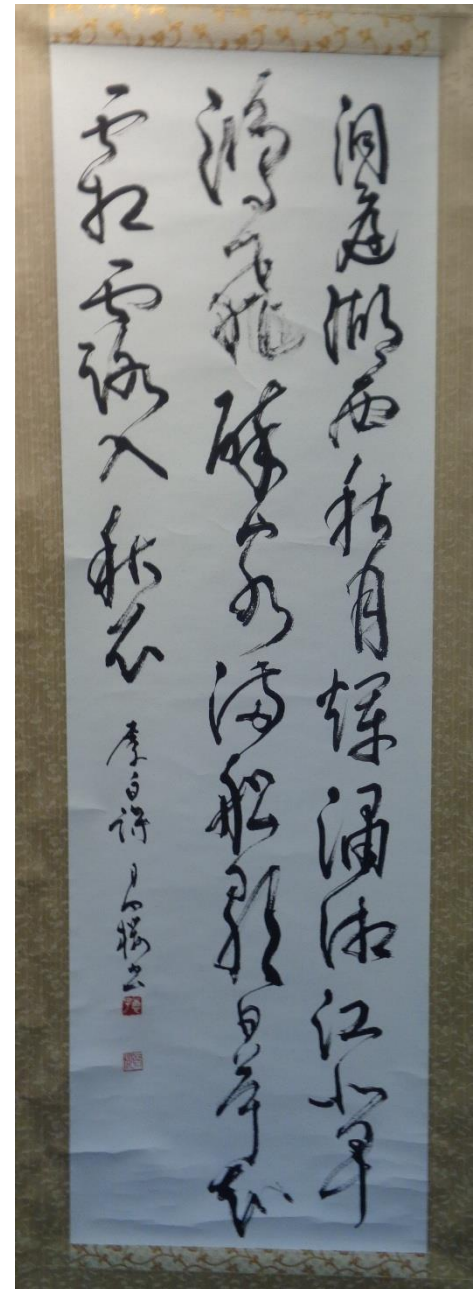 洞庭湖西秋月輝瀟湘江北早
鴻飛醉客満船歌白苧知
霜露入秋衣 李白詩 書